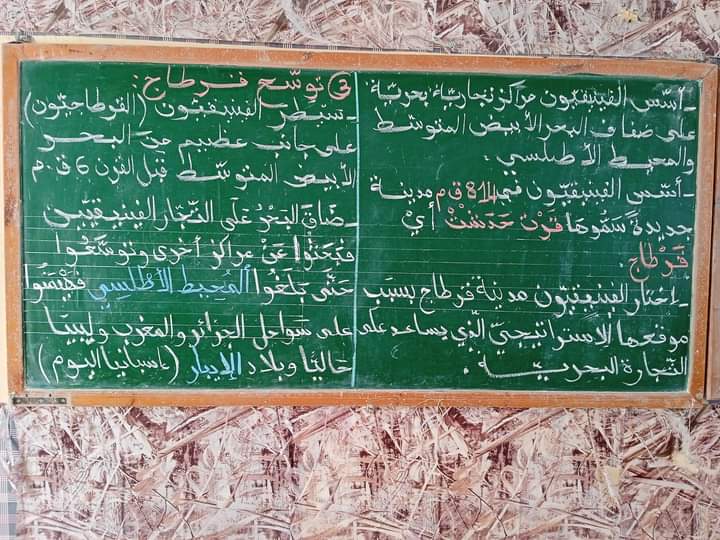 - أسّس الفينيقيّون مراكز تجاريّة بحريّة
على ضفاف البحر الأبيض المتوسّط
والمحيط الأطلسي.
- أسّس الفينيقيّون في 814 ق م مدينة
جديدةً سَمّوهَا قَرْتْ حَدَشْتْ أيْ
قَرْطاج
- اختار الفينيقيّون مدينة قرطاج بسبب
موقعها الإستراتيجيّ الّذي يساعد على
التّجارة البحريّة.
③ توسّع قرطاج:
- سيطر الفينيقيّون (القرطاجيّون)
على جانب عظيم من البحر
الأبيض المتوسّط قبل القرن 6 ق.م
- ضَاقَ البَحْرُ عَلَى التُّجّار الفينيقيّين
فبَحَثُوا عَنْ مراكز أخرى وتوسَّعُوا
حَتّى بَلَغُوا المُحِيط الأطْلسِي فهَيْمَنُوا
على سَوَاحل الجزائر والمغرب وليبيَا
حَاليًا وبلاد الإيبار (اسبانيا اليوم)